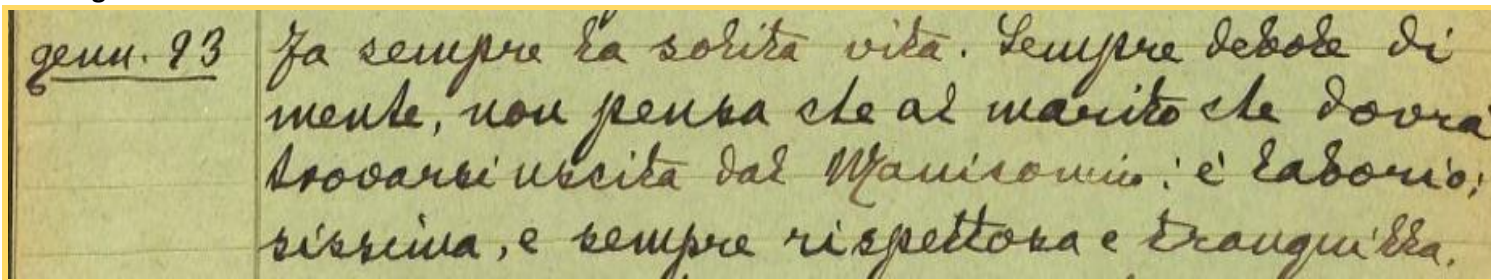 genn. 93 Fa sempre la solita vita. Sempre debole di
mente, non pensa che al marito che dovrà
trovarsi uscita dal Manicomio; è laborio:
sissima, e sempre rispettosa e tranquilla.